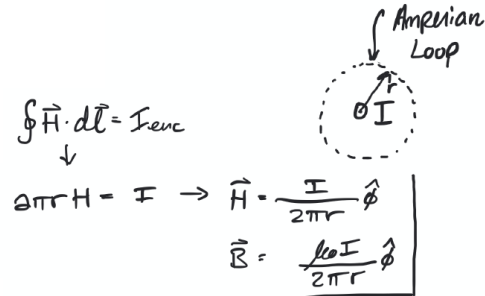 Amperian
Loop
r
I
∮H⃗·dl⃗ = Ienc
↓
2πrH = I → H⃗ = I/2πr φ̂
B⃗ = μ₀I/2πr φ̂